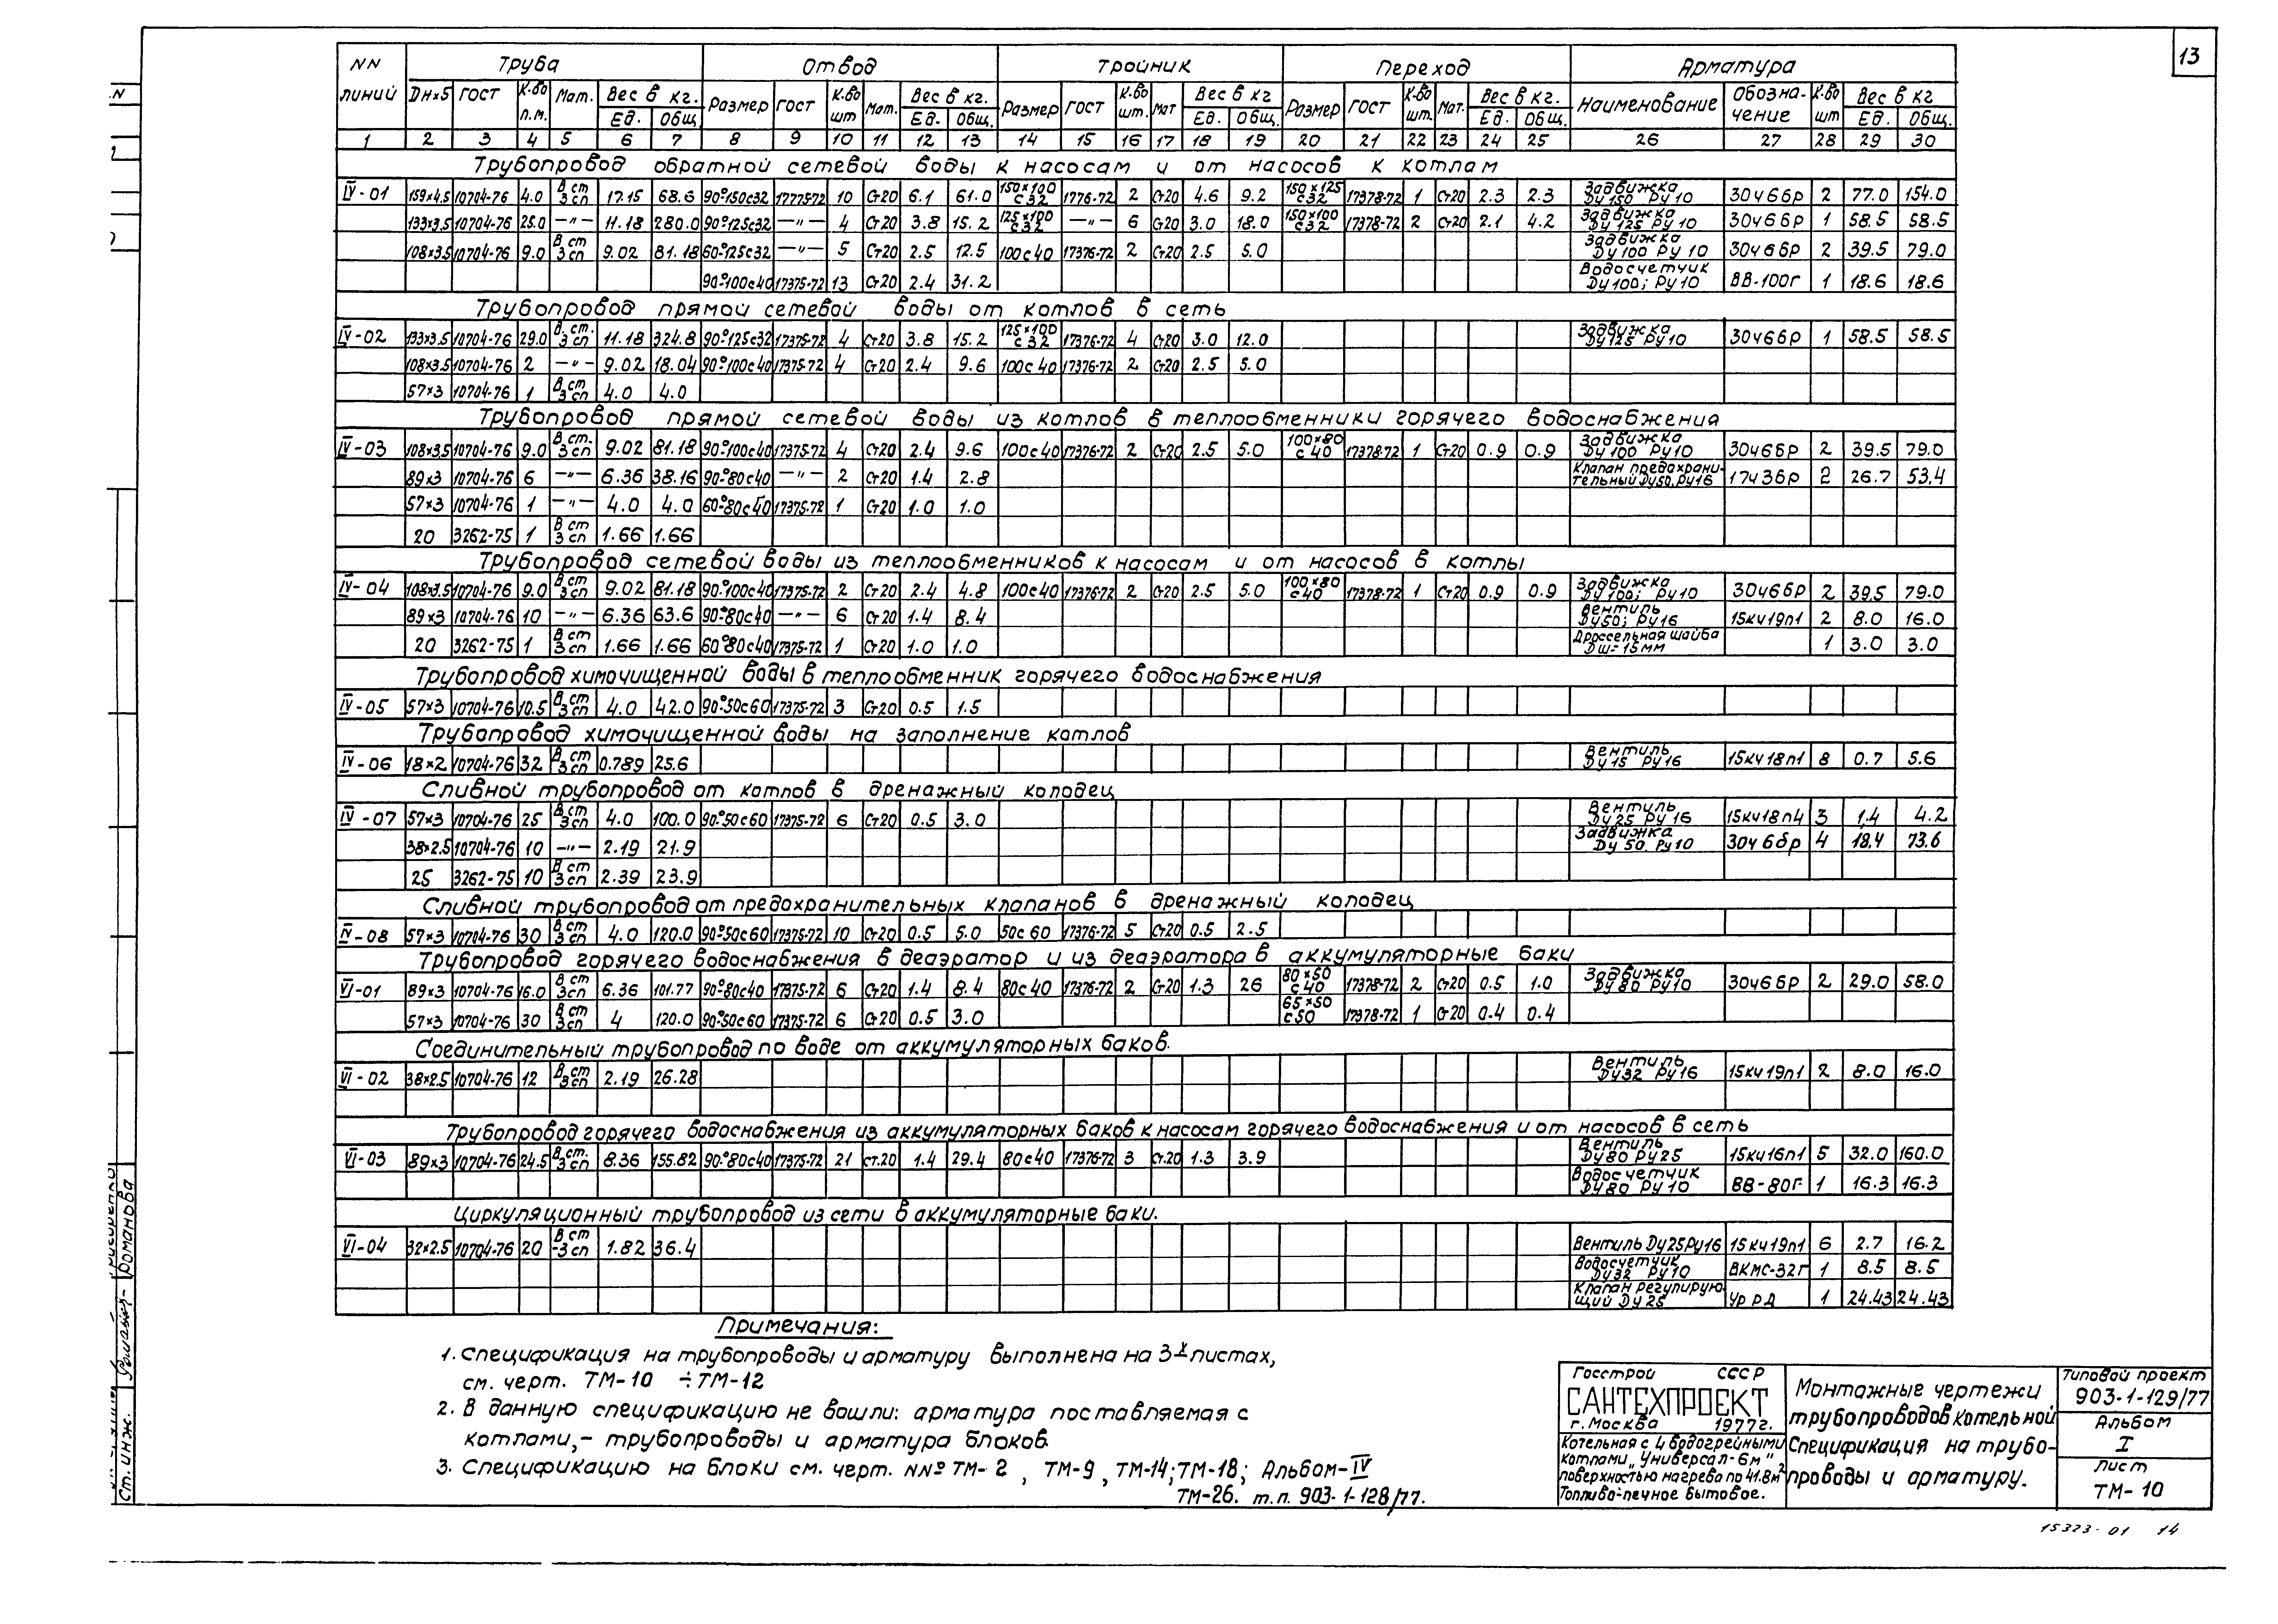 13
NN линий | Труба | Отвод | Тройник | Переход | Арматура
Дн×S | ГОСТ | К-во п.м. | Мат. | Вес в кг. Ед. | Общ. | Размер | ГОСТ | К-во шт | Мат. | Вес в кг. Ед. | Общ. | Размер | ГОСТ | К-во шт. | Мат | Вес в кг Ед. | Общ. | Размер | ГОСТ | К-во шт. | Мат. | Вес в кг. Ед. | Общ. | Наименование | Обозначение | К-во шт | Вес в кг Ед. | Общ.
1 | 2 | 3 | 4 | 5 | 6 | 7 | 8 | 9 | 10 | 11 | 12 | 13 | 14 | 15 | 16 | 17 | 18 | 19 | 20 | 21 | 22 | 23 | 24 | 25 | 26 | 27 | 28 | 29 | 30
Трубопровод обратной сетевой воды к насосам и от насосов к котлам
IV-01 | 159×4.5 | 10704-76 | 4.0 | В ст 3 сп | 17.15 | 68.6 | 90°-150с32 | 17775-72 | 10 | Ст20 | 6.1 | 61.0 | 150×100 с32 | 1776-72 | 2 | Ст20 | 4.6 | 9.2 | 150×125 с32 | 17378-72 | 1 | Ст20 | 2.3 | 2.3 | Задвижка Ду150 Ру10 | 30ч6бр | 2 | 77.0 | 154.0
133×3.5 | 10704-76 | 25.0 | —"— | 11.18 | 280.0 | 90°-125с32 | —"— | 4 | Ст20 | 3.8 | 15.2 | 125×100 с32 | —"— | 6 | Ст20 | 3.0 | 18.0 | 150×100 с32 | 17378-72 | 2 | Ст20 | 2.1 | 4.2 | Задвижка Ду125 Ру10 | 30ч6бр | 1 | 58.5 | 58.5
108×3.5 | 10704-76 | 9.0 | В ст 3 сп | 9.02 | 81.18 | 60°-125с32 | —"— | 5 | Ст20 | 2.5 | 12.5 | 100с40 | 17376-72 | 2 | Ст20 | 2.5 | 5.0 | Задвижка Ду100 Ру10 | 30ч6бр | 2 | 39.5 | 79.0
90°-100с40 | 17375-72 | 13 | Ст20 | 2.4 | 31.2 | Водосчетчик Ду100; Ру10 | ВВ-100г | 1 | 18.6 | 18.6
Трубопровод прямой сетевой воды от котлов в сеть
IV-02 | 133×3.5 | 10704-76 | 29.0 | В ст. 3 сп | 11.18 | 324.8 | 90°-125с32 | 17375-72 | 4 | Ст20 | 3.8 | 15.2 | 125×100 с32 | 17376-72 | 4 | Ст20 | 3.0 | 12.0 | Задвижка Ду125 Ру10 | 30ч6бр | 1 | 58.5 | 58.5
108×3.5 | 10704-76 | 2 | —"— | 9.02 | 18.04 | 90°-100с40 | 17375-72 | 4 | Ст20 | 2.4 | 9.6 | 100с40 | 17376-72 | 2 | Ст20 | 2.5 | 5.0
57×3 | 10704-76 | 1 | В ст 3 сп | 4.0 | 4.0
Трубопровод прямой сетевой воды из котлов в теплообменники горячего водоснабжения
IV-03 | 108×3.5 | 10704-76 | 9.0 | В ст. 3 сп | 9.02 | 81.18 | 90°-100с40 | 17375-72 | 4 | Ст20 | 2.4 | 9.6 | 100с40 | 17376-72 | 2 | Ст20 | 2.5 | 5.0 | 100×80 с40 | 17378-72 | 1 | Ст20 | 0.9 | 0.9 | Задвижка Ду100 Ру10 | 30ч6бр | 2 | 39.5 | 79.0
89×3 | 10704-76 | 6 | —"— | 6.36 | 38.16 | 90°-80с40 | —"— | 2 | Ст20 | 1.4 | 2.8 | Клапан предохранительный Ду50, Ру16 | 17ч3бр | 2 | 26.7 | 53.4
57×3 | 10704-76 | 1 | —"— | 4.0 | 4.0 | 60°-80с40 | 17375-72 | 1 | Ст20 | 1.0 | 1.0
20 | 3262-75 | 1 | В ст 3 сп | 1.66 | 1.66
Трубопровод сетевой воды из теплообменников к насосам и от насосов в котлы
IV-04 | 108×3.5 | 10704-76 | 9.0 | В ст 3 сп | 9.02 | 81.18 | 90°-100с40 | 17375-72 | 2 | Ст20 | 2.4 | 4.8 | 100с40 | 17376-72 | 2 | Ст20 | 2.5 | 5.0 | 100×80 с40 | 17378-72 | 1 | Ст20 | 0.9 | 0.9 | Задвижка Ду100; Ру10 | 30ч6бр | 2 | 39.5 | 79.0
89×3 | 10704-76 | 10 | —"— | 6.36 | 63.6 | 90°-80с40 | —"— | 6 | Ст20 | 1.4 | 8.4 | Вентиль Ду50; Ру16 | 15кч19п1 | 2 | 8.0 | 16.0
20 | 3262-75 | 1 | В ст 3 сп | 1.66 | 1.66 | 60°-80с40 | 17375-72 | 1 | Ст20 | 1.0 | 1.0 | Дроссельная шайба Dш=15мм | 1 | 3.0 | 3.0
Трубопровод химочищенной воды в теплообменник горячего водоснабжения
IV-05 | 57×3 | 10704-76 | 10.5 | В ст 3 сп | 4.0 | 42.0 | 90°-50с60 | 17375-72 | 3 | Ст20 | 0.5 | 1.5
Трубопровод химочищенной воды на заполнение котлов
IV-06 | 18×2 | 10704-76 | 32 | В ст 3 сп | 0.789 | 25.6 | Вентиль Ду15 Ру16 | 15кч18п1 | 8 | 0.7 | 5.6
Сливной трубопровод от котлов в дренажный колодец
IV-07 | 57×3 | 10704-76 | 25 | В ст 3 сп | 4.0 | 100.0 | 90°-50с60 | 17375-72 | 6 | Ст20 | 0.5 | 3.0 | Вентиль Ду25 Ру16 | 15кч18п4 | 3 | 1.4 | 4.2
38×2.5 | 10704-76 | 10 | —"— | 2.19 | 21.9 | Задвижка Ду50. Ру10 | 30ч6бр | 4 | 18.4 | 73.6
25 | 3262-75 | 10 | В ст 3 сп | 2.39 | 23.9
Сливной трубопровод от предохранительных клапанов в дренажный колодец
IV-08 | 57×3 | 10704-76 | 30 | В ст 3 сп | 4.0 | 120.0 | 90°-50с60 | 17375-72 | 10 | Ст20 | 0.5 | 5.0 | 50с60 | 17376-72 | 5 | Ст20 | 0.5 | 2.5
Трубопровод горячего водоснабжения в деаэратор и из деаэратора в аккумуляторные баки
VI-01 | 89×3 | 10704-76 | 16.0 | В ст 3 сп | 6.36 | 101.77 | 90°-80с40 | 17375-72 | 6 | Ст20 | 1.4 | 8.4 | 80с40 | 17376-72 | 2 | Ст20 | 1.3 | 26 | 80×50 с40 | 17378-72 | 2 | Ст20 | 0.5 | 1.0 | Задвижка Ду80 Ру10 | 30ч6бр | 2 | 29.0 | 58.0
57×3 | 10704-76 | 30 | В ст 3 сп | 4 | 120.0 | 90°-50с60 | 17375-72 | 6 | Ст20 | 0.5 | 3.0 | 65×50 с50 | 17378-72 | 1 | Ст20 | 0.4 | 0.4
Соединительный трубопровод по воде от аккумуляторных баков.
VI-02 | 38×2.5 | 10704-76 | 12 | В ст 3 сп | 2.19 | 26.28 | Вентиль Ду32 Ру16 | 15кч19п1 | 2 | 8.0 | 16.0
Трубопровод горячего водоснабжения из аккумуляторных баков к насосам горячего водоснабжения и от насосов в сеть
VI-03 | 89×3 | 10704-76 | 24.5 | В ст. 3 сп | 8.36 | 155.82 | 90°-80с40 | 17375-72 | 21 | ст.20 | 1.4 | 29.4 | 80с40 | 17376-72 | 3 | Ст.20 | 1.3 | 3.9 | Вентиль Ду80 Ру25 | 15кч16п1 | 5 | 32.0 | 160.0
Водосчетчик Ду80 Ру10 | ВВ-80г | 1 | 16.3 | 16.3
Циркуляционный трубопровод из сети в аккумуляторные баки.
VI-04 | 32×2.5 | 10704-76 | 20 | В ст 3 сп | 1.82 | 36.4 | Вентиль Ду25 Ру16 | 15кч19п1 | 6 | 2.7 | 16.2
Водосчетчик Ду32 Ру10 | ВКМС-32г | 1 | 8.5 | 8.5
Клапан регулирующий Ду25 | УРРД | 1 | 24.43 | 24.43
Примечания:
1. Спецификация на трубопроводы и арматуру выполнена на 3х листах,
см. черт. ТМ-10 ÷ТМ-12
2. В данную спецификацию не вошли: арматура поставляемая с
котлами,- трубопроводы и арматура блоков.
3. Спецификацию на блоки см. черт. NNº ТМ-2, ТМ-9, ТМ-14; ТМ-18; Альбом-IV
ТМ-26. т.п. 903-1-128/77.
Госстрой СССР
САНТЕХПРОЕКТ
г. Москва 1977г.
Котельная с 4 водогрейными
котлами „Универсал-6м"
поверхностью нагрева по 41.8м²
Топливо-печное бытовое.
Монтажные чертежи
трубопроводов котельной
Спецификация на трубо-
проводы и арматуру.
Типовой проект
903-1-129/77
Альбом
I
Лист
ТМ-10
15323-01 14
Ст. инж.
Романова